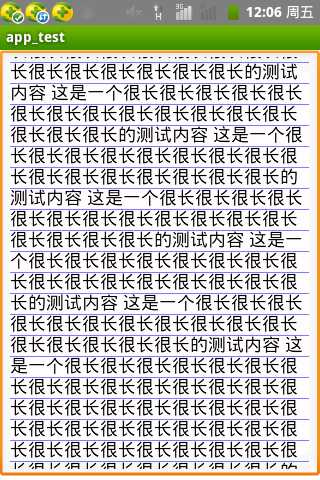 app_test
12:06 周五
长很长很长很长很长很长很长的测试
内容 这是一个很长很长很长很长很长
很长很长很长很长很长很长很长很长
很长很长很长的测试内容 这是一个很
长很长很长很长很长很长很长很长很
长很长很长很长很长很长很长很长的
测试内容 这是一个很长很长很长很长
很长很长很长很长很长很长很长很长
很长很长很长很长的测试内容 这是一
个很长很长很长很长很长很长很长很
长很长很长很长很长很长很长很长很
长的测试内容 这是一个很长很长很长
很长很长很长很长很长很长很长很长
很长很长很长很长很长的测试内容 这
是一个很长很长很长很长很长很长很
长很长很长很长很长很长很长很长很
长很长很长很长很长很长很长很长很
长很长很长很长很长很长很长很长很
长很长很长很长很长很长很长很长很